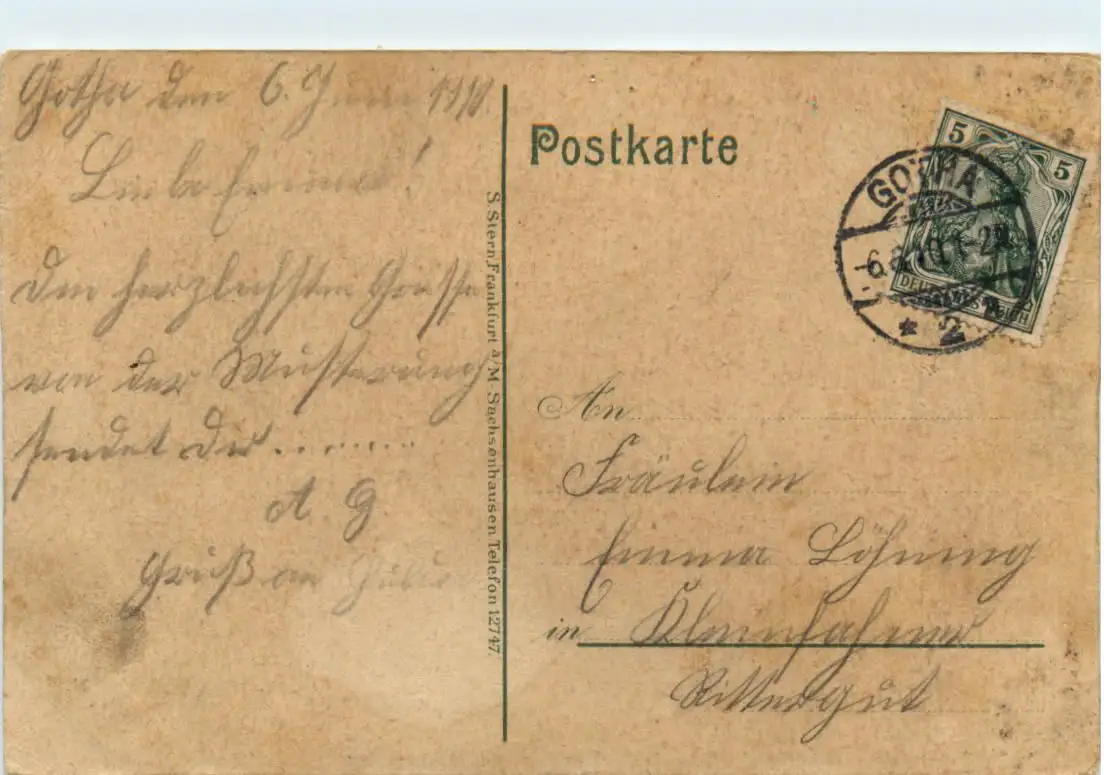 Gotha den 6. J 1910.
Liebe Emma!
Den herzlichsten Grüsse
von der Musterung
sendet dir ........
A. G
Gruß an
S. Stern, Frankfurt a/M-Sachsenhausen Telefon 12747.
Postkarte
5 5
DEUTSCHES REICH
GOTHA
-6.6.10.1-2N
* 2
An
Fräulein
Emma Löhning
in Kleinfahner
Rittergut